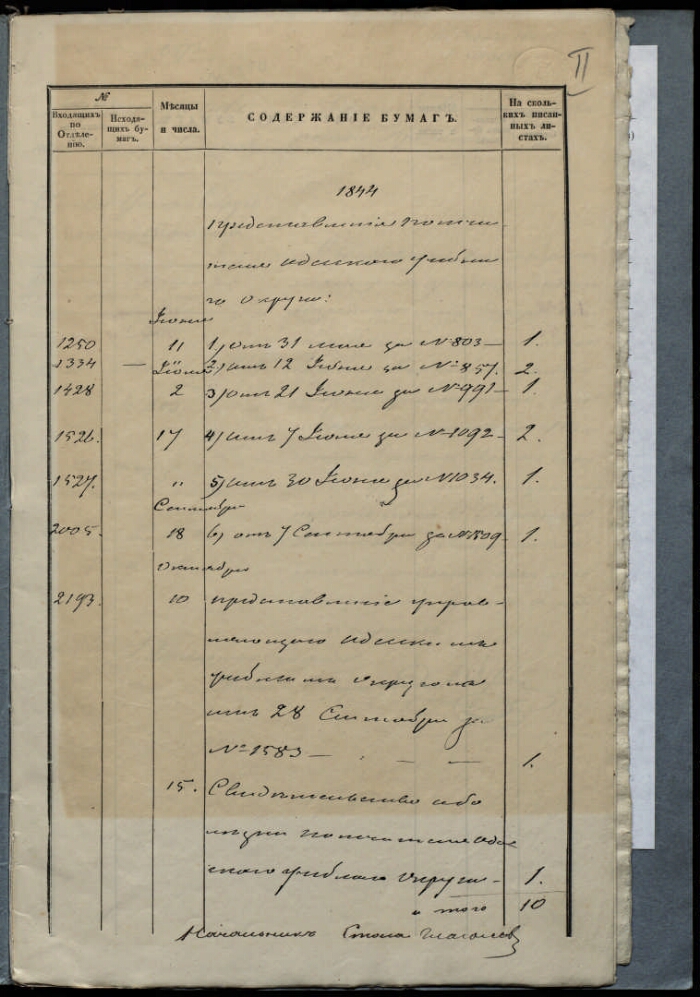 II
№
Входящихъ по Отдѣленію.
Исходящихъ бумагъ.
Мѣсяцы и числа.
СОДЕРЖАНІЕ БУМАГЪ.
На сколькихъ писанныхъ листахъ.
1844
Представленія Попечи
теля Одесскаго Учебна
го Округа:
Іюня
1250 11 1) отъ 31 мая за № 803 — 1.
1334 — Іюля 2) отъ 12 Іюня за № 857. 2.
1428 2 3) отъ 21 Іюня за № 991 — 1.
1526. 17 4) отъ 7 Іюля за № 1092 — 2.
1527. " 5) отъ 30 Іюня за № 1034. 1.
Сентября
2005. 18 6) отъ 7 Сентября за № 1.
Октября
2193. 10 Представленіе управ
ляющаго Одесскимъ
учебнымъ Округомъ
отъ 28 Сентября за
№ 1583 — - - — 1.
15. Свидѣтельство о бо
лѣзни Попечителя Одес
скаго учебнаго Округа — 1.
итого 10
Начальникъ Стола